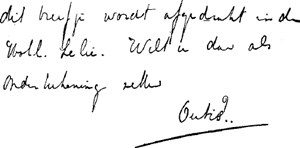 dit briefje wordt afgedrukt in de
Holl. Lelie. Wilt u dan als
onderteekening zetten